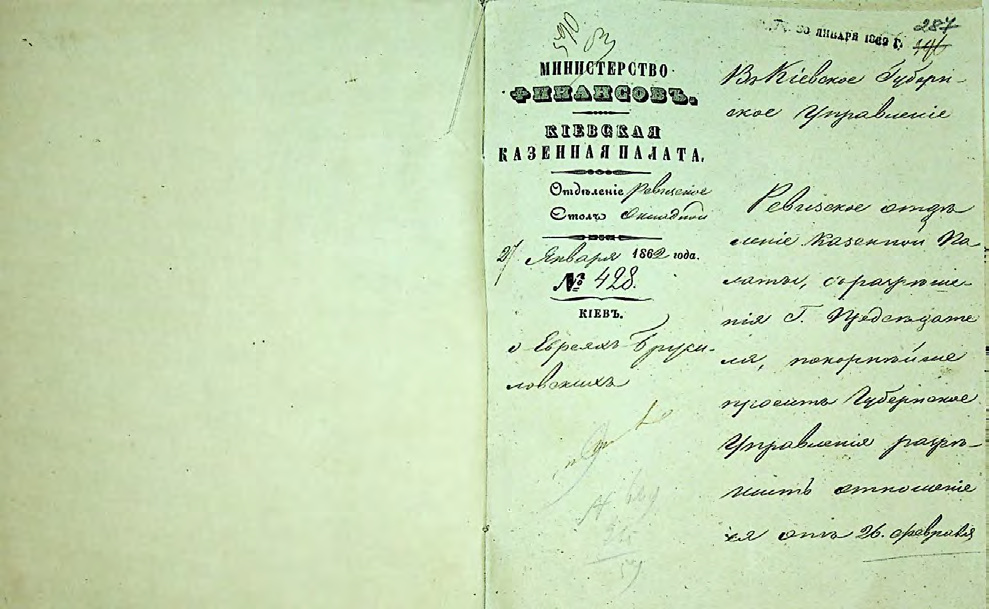 590
30 ЯНВАРЯ 1862 Г.
287
МИНИСТЕРСТВО
ФИНАНСОВЪ.
КІЕВСКАЯ
КАЗЕННАЯ ПАЛАТА.
Отдѣленіе Ревизское
Столъ Окладной
27 Января 1862 года.
№ 428.
КІЕВЪ.
о Евреяхъ Бруси-
ловскихъ
Въ Кіевское Губерн-
ское Управленіе
Ревизское отдѣ
леніе Казенной Па-
латы, съ разрѣше-
нія Г. Предсѣдате
ля, покорнѣйше
проситъ Губернское
Управленіе разрѣ-
шить отношеніе
ея отъ 26. февраля